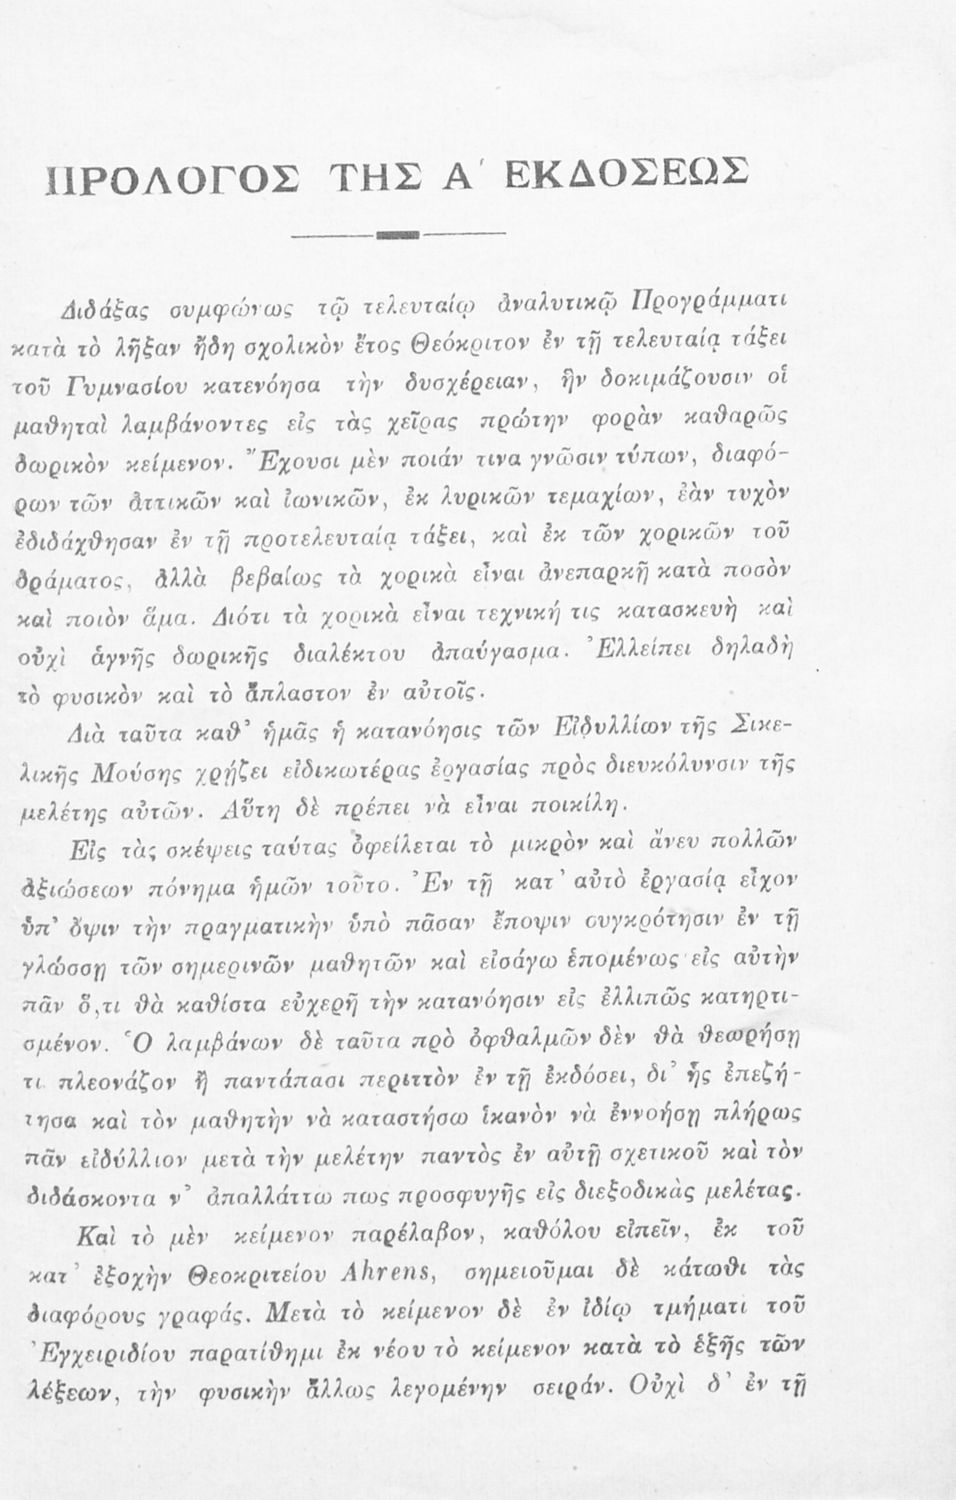 ΠΡΟΛΟΓΟΣ ΤΗΣ Α΄ ΕΚΔΟΣΕΩΣ
Διδάξας συμφώνως τῷ τελευταίῳ ἀναλυτικῷ Προγράμματι
κατὰ τὸ λῆξαν ἤδη σχολικὸν ἔτος Θεόκριτον ἐν τῇ τελευταίᾳ τάξει
τοῦ Γυμνασίου κατενόησα τὴν δυσχέρειαν, ἣν δοκιμάζουσιν οἱ
μαθηταὶ λαμβάνοντες εἰς τὰς χεῖρας πρώτην φορὰν καθαρῶς
δωρικὸν κείμενον. Ἔχουσι μὲν ποιάν τινα γνῶσιν τύπων, διαφό-
ρων τῶν ἀττικῶν καὶ ἰωνικῶν, ἐκ λυρικῶν τεμαχίων, ἐὰν τυχὸν
ἐδιδάχθησαν ἐν τῇ προτελευταίᾳ τάξει, καὶ ἐκ τῶν χορικῶν τοῦ
δράματος, ἀλλὰ βεβαίως τὰ χορικὰ εἶναι ἀνεπαρκῆ κατὰ ποσὸν
καὶ ποιὸν ἅμα. Διότι τὰ χορικὰ εἶναι τεχνική τις κατασκευὴ καὶ
οὐχὶ ἁγνῆς δωρικῆς διαλέκτου ἀπαύγασμα. Ἐλλείπει δηλαδὴ
τὸ φυσικὸν καὶ τὸ ἄπλαστον ἐν αὐτοῖς.
Διὰ ταῦτα καθ' ἡμᾶς ἡ κατανόησις τῶν Εἰδυλλίων τῆς Σικε-
λικῆς Μούσης χρῄζει εἰδικωτέρας ἐργασίας πρὸς διευκόλυνσιν τῆς
μελέτης αὐτῶν. Αὕτη δὲ πρέπει νὰ εἶναι ποικίλη.
Εἰς τὰς σκέψεις ταύτας ὀφείλεται τὸ μικρὸν καὶ ἄνευ πολλῶν
ἀξιώσεων πόνημα ἡμῶν τοῦτο. Ἐν τῇ κατ' αὐτὸ ἐργασίᾳ εἶχον
ὑπ' ὄψιν τὴν πραγματικὴν ὑπὸ πᾶσαν ἔποψιν συγκρότησιν ἐν τῇ
γλώσσῃ τῶν σημερινῶν μαθητῶν καὶ εἰσάγω ἑπομένως εἰς αὐτὴν
πᾶν ὅ,τι θὰ καθίστα εὐχερῆ τὴν κατανόησιν εἰς ἐλλιπῶς κατηρτι-
σμένον. Ὁ λαμβάνων δὲ ταῦτα πρὸ ὀφθαλμῶν δὲν θὰ θεωρήσῃ
τι πλεονάζον ἢ παντάπασι περιττὸν ἐν τῇ ἐκδόσει, δι' ἧς ἐπεζή-
τησα καὶ τὸν μαθητὴν νὰ καταστήσω ἱκανὸν νὰ ἐννοήσῃ πλήρως
πᾶν εἰδύλλιον μετὰ τὴν μελέτην παντὸς ἐν αὐτῇ σχετικοῦ καὶ τὸν
διδάσκοντα ν' ἀπαλλάττω πως προσφυγῆς εἰς διεξοδικὰς μελέτας.
Καὶ τὸ μὲν κείμενον παρέλαβον, καθόλου εἰπεῖν, ἐκ τοῦ
κατ' ἐξοχὴν Θεοκριτείου Ahrens, σημειοῦμαι δὲ κάτωθι τὰς
διαφόρους γραφάς. Μετὰ τὸ κείμενον δὲ ἐν ἰδίῳ τμήματι τοῦ
Ἐγχειριδίου παρατίθημι ἐκ νέου τὸ κείμενον κατὰ τὸ ἑξῆς τῶν
λέξεων, τὴν φυσικὴν ἄλλως λεγομένην σειράν. Οὐχὶ δ' ἐν τῇ